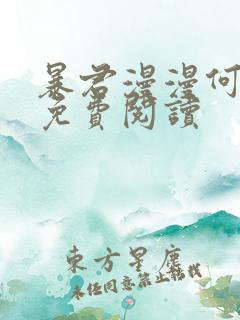 暴君漫漫何
免費閱讀
東方星塵
未經同意禁止轉載